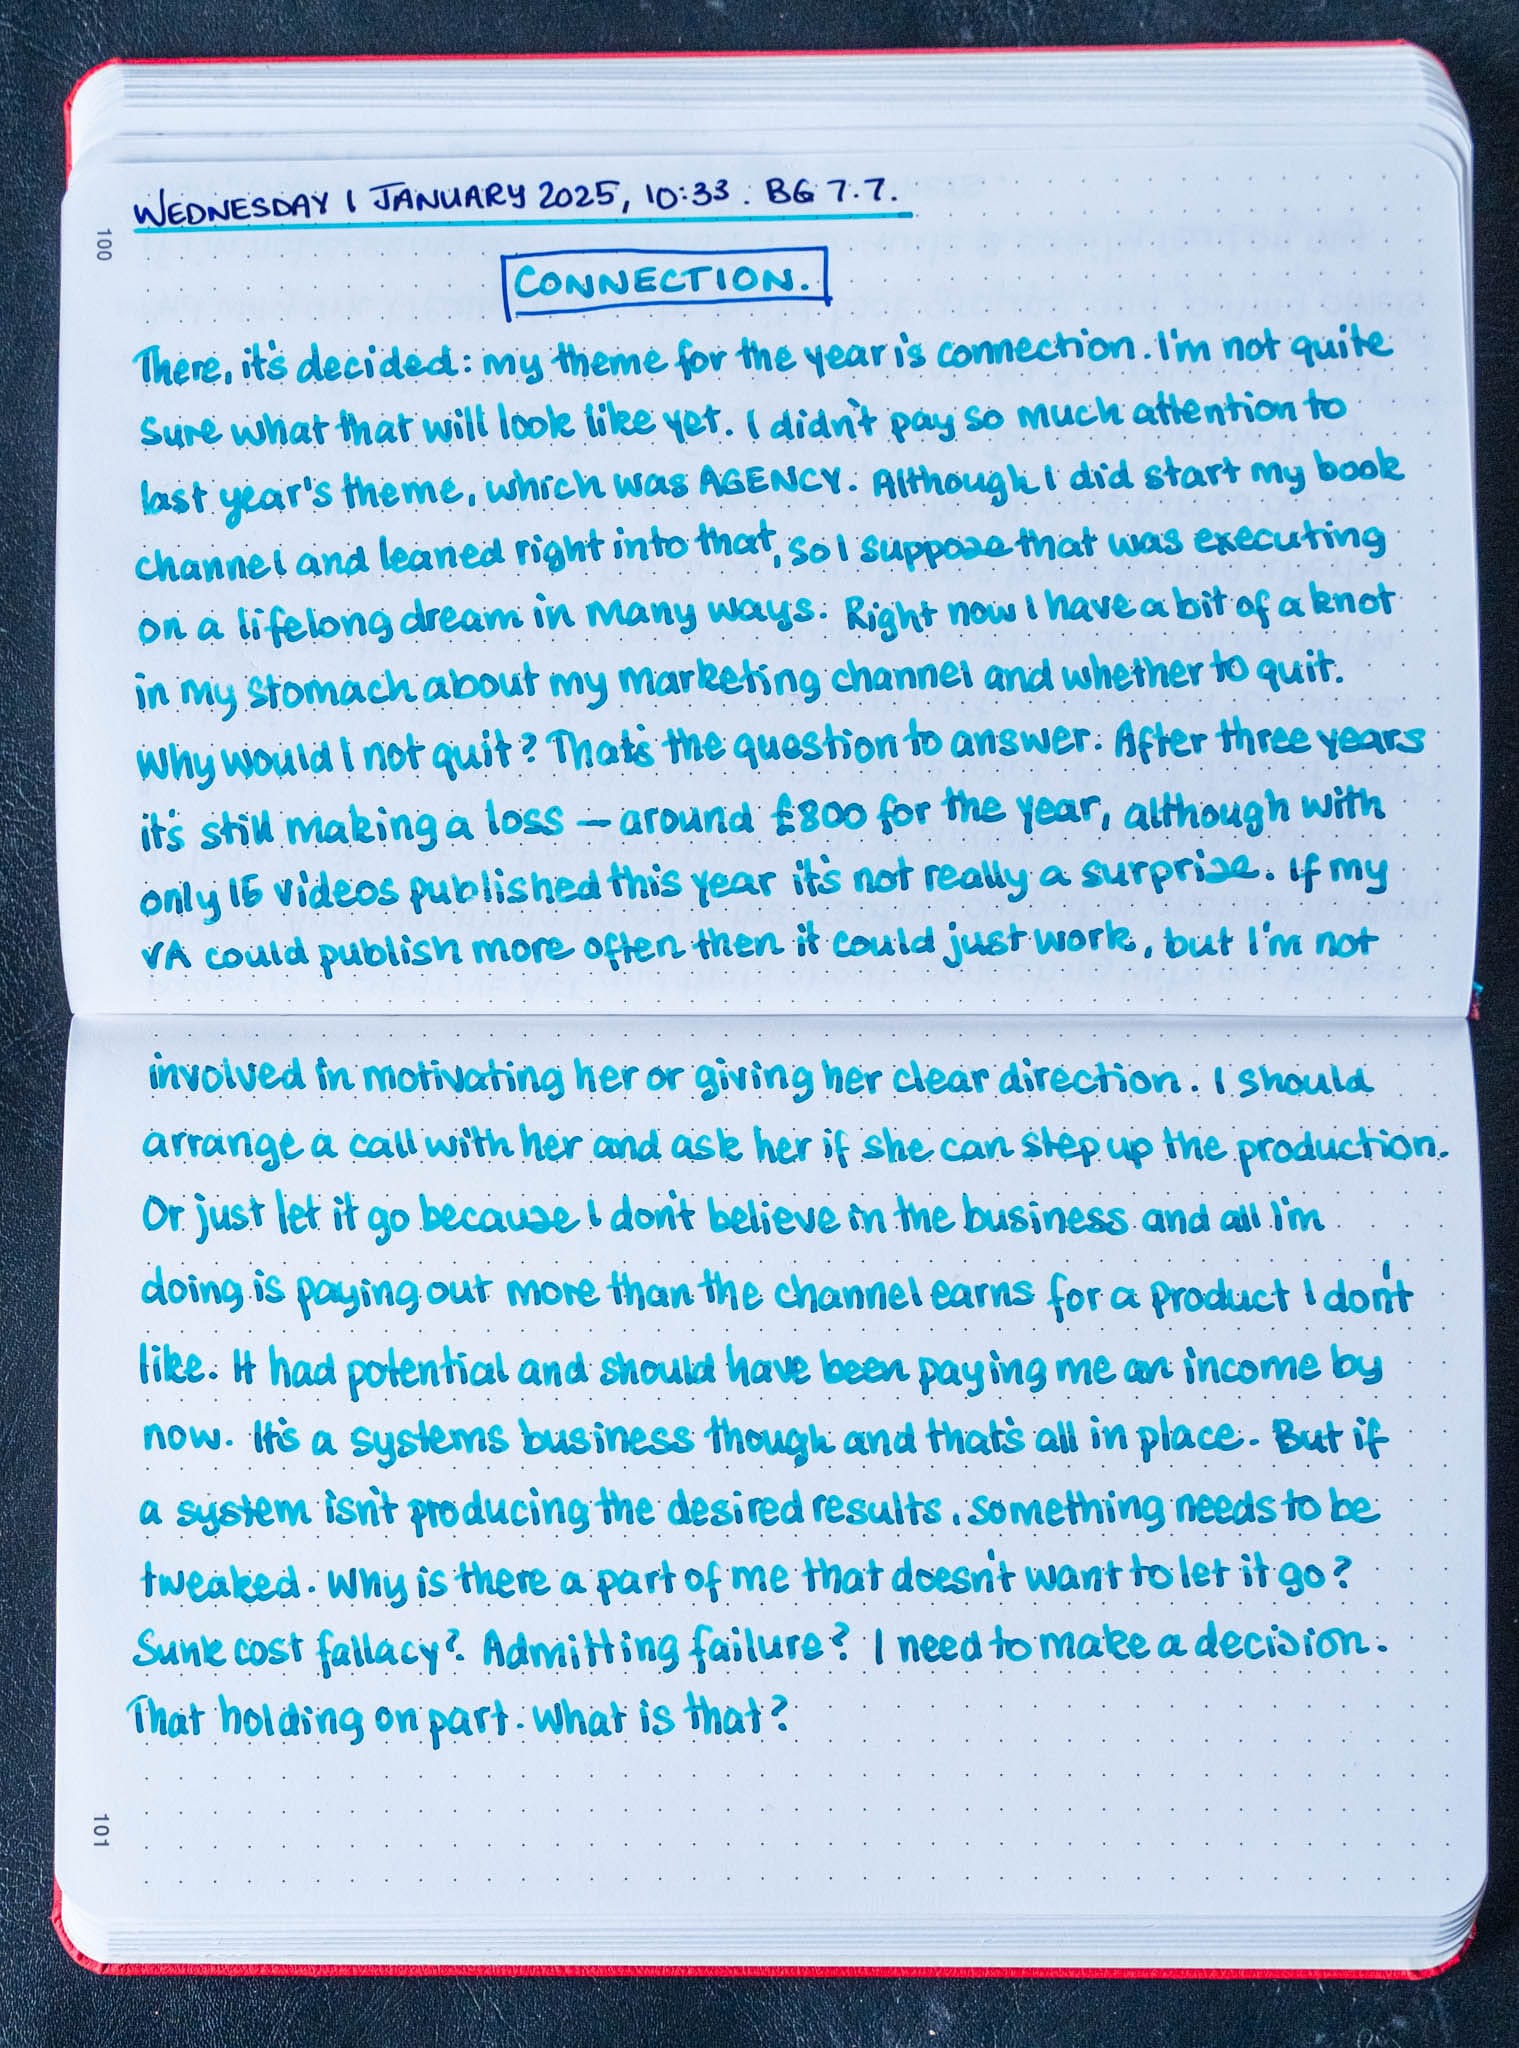 WEDNESDAY 1 JANUARY 2025, 10:33. BG 7.7.
100
CONNECTION.
There, it's decided: my theme for the year is connection. I'm not quite
sure what that will look like yet. I didn't pay so much attention to
last year's theme, which was AGENCY. Although I did start my book
channel and leaned right into that, so I suppose that was executing
on a lifelong dream in many ways. Right now I have a bit of a knot
in my stomach about my marketing channel and whether to quit.
Why would I not quit? That's the question to answer. After three years
it's still making a loss – around £800 for the year, although with
only 15 videos published this year it's not really a surprise. If my
VA could publish more often then it could just work, but I'm not
involved in motivating her or giving her clear direction. I should
arrange a call with her and ask her if she can step up the production.
Or just let it go because I don't believe in the business and all I'm
doing is paying out more than the channel earns for a product I don't
like. It had potential and should have been paying me an income by
now. It's a systems business though and that's all in place. But if
a system isn't producing the desired results, something needs to be
tweaked. Why is there a part of me that doesn't want to let it go?
Sunk cost fallacy? Admitting failure? I need to make a decision.
That holding on part. What is that?
101